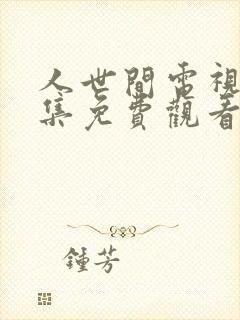 人世間電視
集免費觀看
鍾芳